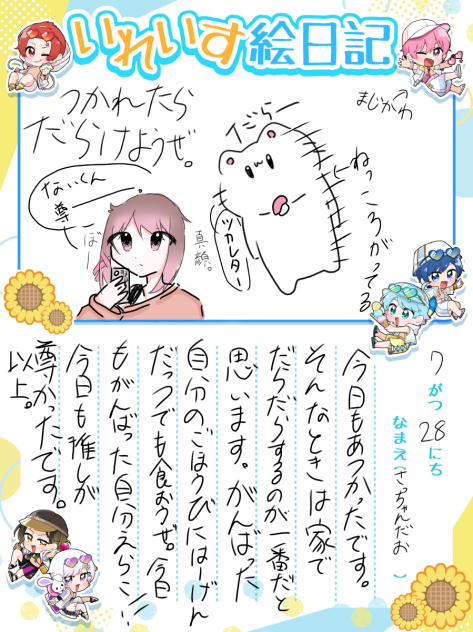 いれいす絵日記
まじかわ
つかれたら
だらけようぜ。
だらー
ないくん
尊ー。
ぼー
真顔。
ツカレター
ねっころがってる
7がつ28にち
なまえ(さっちゃんだお)
今日もあつかったです。
そんなときは家で
だらだらするのが一番だと
思います。がんばった
自分のごほうびにはげん
だっつでも食おうぜ。今日
もがんばった自分えらこい!!
今日も推しが
尊かったです。
以上。